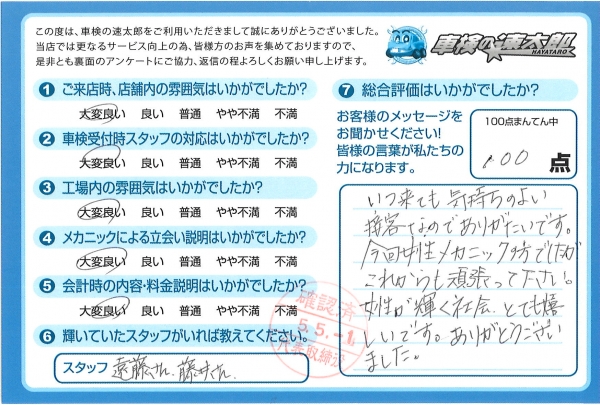 この度は、車検の速太郎をご利用いただきまして誠にありがとうございました。
当店では更なるサービス向上の為、皆様方のお声を集めておりますので、
是非とも裏面のアンケートにご協力、返信の程よろしくお願い申し上げます。
車検の速太郎
HAYATARO
1 ご来店時、店舗内の雰囲気はいかがでしたか?
大変良い 良い 普通 やや不満 不満
2 車検受付時スタッフの対応はいかがでしたか?
大変良い 良い 普通 やや不満 不満
3 工場内の雰囲気はいかがでしたか?
大変良い 良い 普通 やや不満 不満
4 メカニックによる立会い説明はいかがでしたか?
大変良い 良い 普通 やや不満 不満
5 会計時の内容・料金説明はいかがでしたか?
大変良い 良い 普通 やや不満 不満
6 輝いていたスタッフがいれば教えてください。
スタッフ 遠藤さん、藤井さん
確認済
5.5.-1
代表取締役
7 総合評価はいかがでしたか?
お客様のメッセージを
お聞かせください!
皆様の言葉が私たちの
力になります。
100点まんてん中
100 点
いつ来ても気持ちのよい
接客なのでありがたいです。
今回女性メカニックの方でしたが
これからも頑張って下さい。
女性が輝く社会、とても嬉
しいです。ありがとうござい
ました。